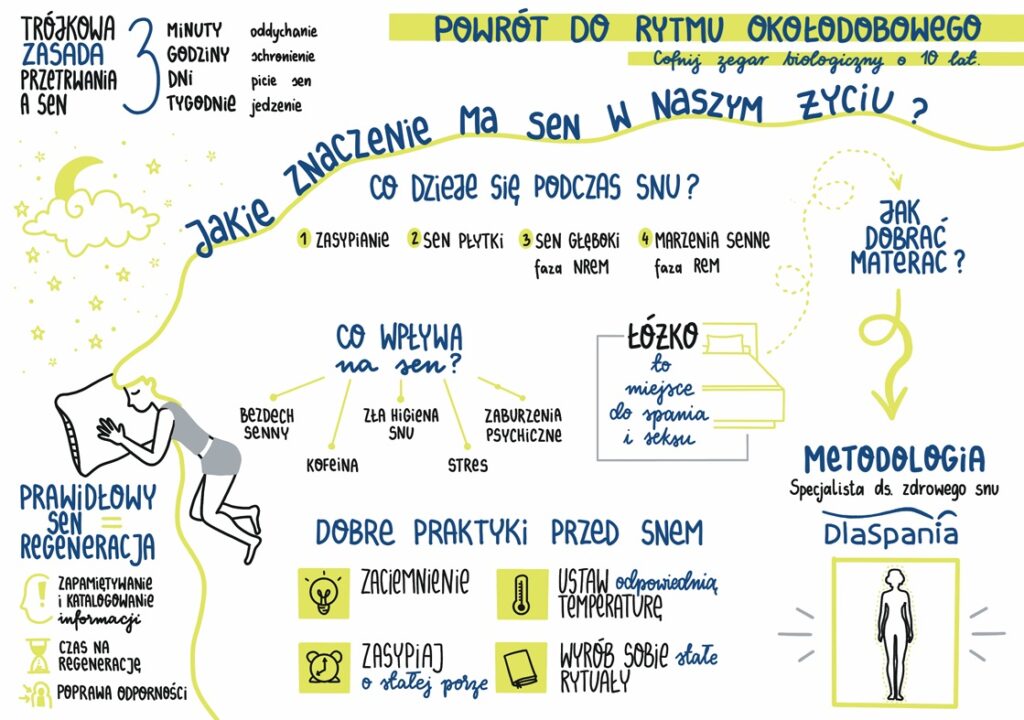 TRÓJKOWA
ZASADA
PRZETRWANIA
A SEN
3
MINUTY oddychanie
GODZINY schronienie
DNI picie sen
TYGODNIE jedzenie
POWRÓT DO RYTMU OKOŁODOBOWEGO
Cofnij zegar biologiczny o 10 lat.
JAKIE ZNACZENIE MA SEN W NASZYM ŻYCIU?
CO DZIEJE SIĘ PODCZAS SNU?
1 ZASYPIANIE
2 SEN PŁYTKI
3 SEN GŁĘBOKI
faza NREM
4 MARZENIA SENNE
faza REM
JAK
DOBRAĆ
MATERAC?
CO WPŁYWA
na sen?
BEZDECH
SENNY
KOFEINA
ZŁA HIGIENA
SNU
STRES
ZABURZENIA
PSYCHICZNE
ŁÓŻKO
to
miejsce
do spania
i seksu
METODOLOGIA
Specjalista ds. zdrowego snu
DlaSpania
PRAWIDŁOWY
SEN =
REGENERACJA
ZAPAMIĘTYWANIE
I KATALOGOWANIE
informacji
CZAS NA
REGENERACJĘ
POPRAWA ODPORNOŚCI
DOBRE PRAKTYKI PRZED SNEM
ZACIEMNIENIE
USTAW odpowiednią
TEMPERATURĘ
ZASYPIAJ
o stałej porze
WYRÓB SOBIE stałe
RYTUAŁY